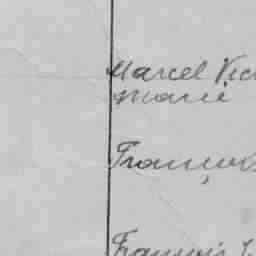 Marcel Vic
Marie
François
François